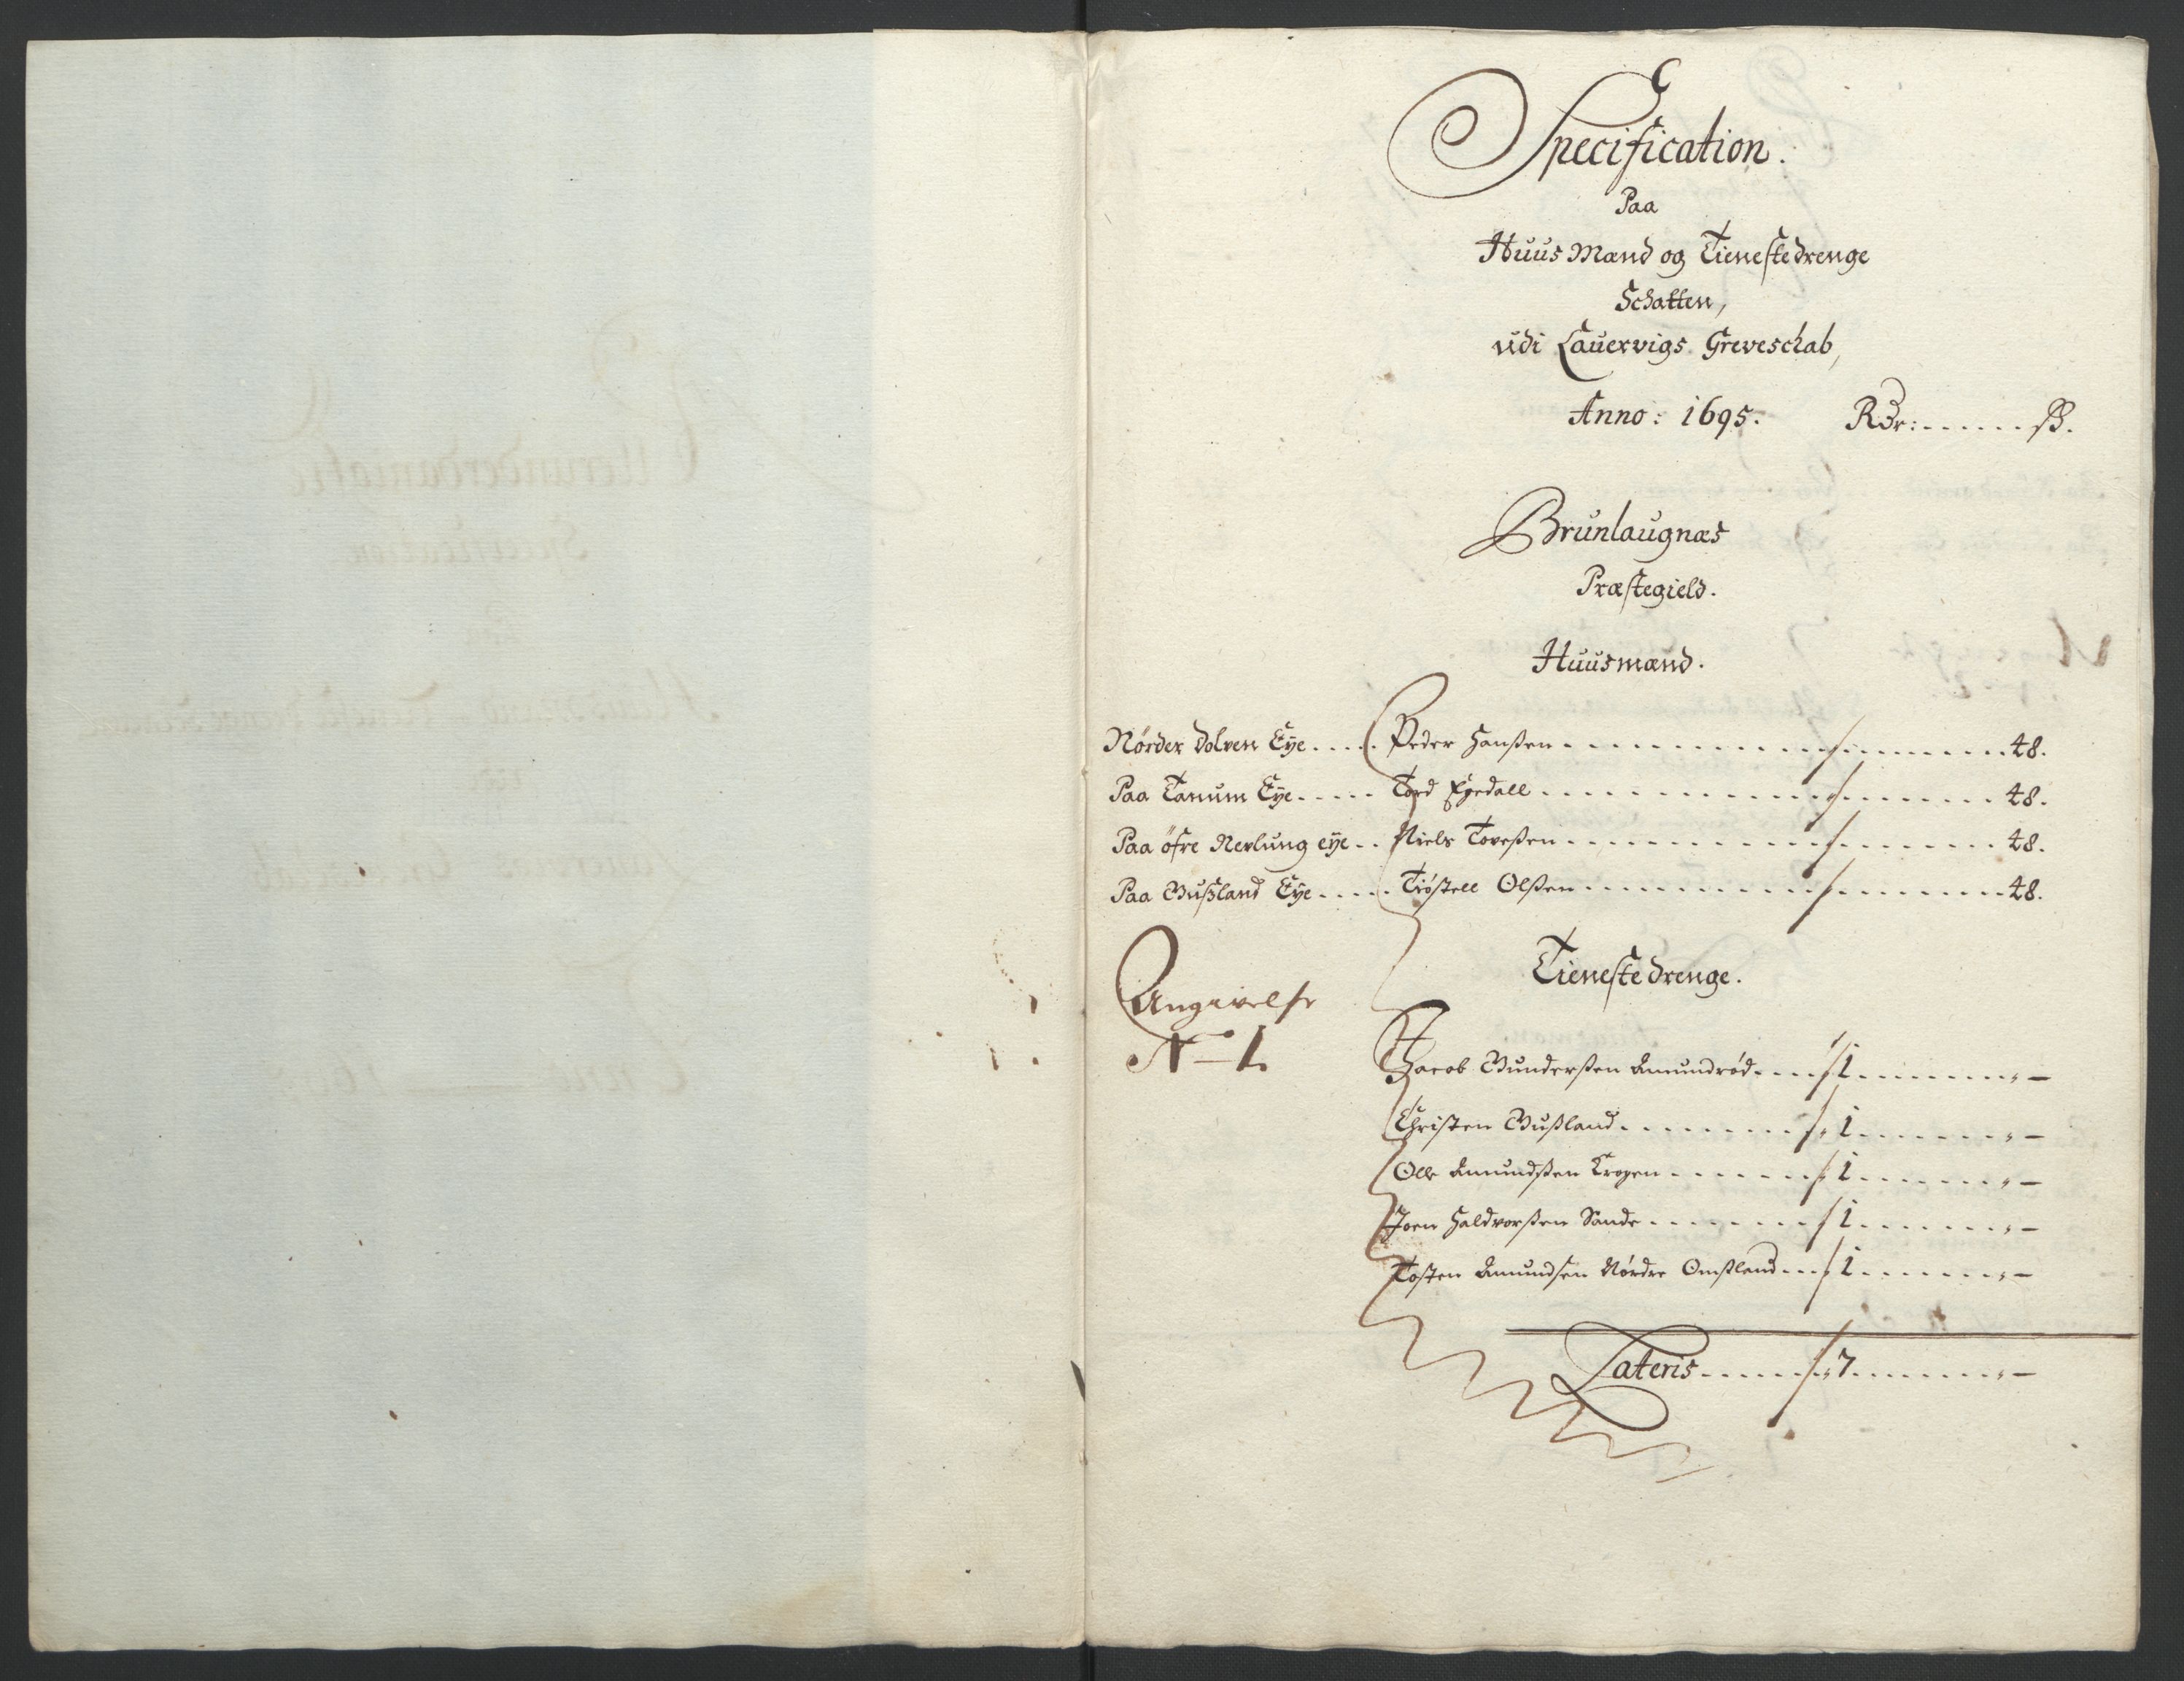 Specification.
Paa
Huus Mænd og Tienestedrenge
Schatten,
udi Lauervigs Greveschab,
Anno: 1695. Rdr: . . . . . . ß.
Brunlaugnæs
Præstegield.
Huusmænd.
Nörder Dolven Eye . . . . . Peder Hanßen . . . . . . . . . . . 48.
Paa Tanum Eye . . . . . Tord Egedall . . . . . . . . . . . 48.
Paa öfre Nevlung eye . . Niels Toveßen . . . . . . . . . . . 48.
Paa Bußland Eye . . . . . Tiöstell Olßen . . . . . . . . . . . 48.
Tienestedrenge.
Angivelse
N– 1.
Jacob Gunderßen Amundröd . . . . 1 . . . . . . . „ –
Christen Bußland . . . . . . . . 1 . . . . . . . „ –
Olle Amundßen Krogen . . . . . . 1 . . . . . . . „ –
Joen Haldvorßen Sande . . . . . . . 1 . . . . . . . „ –
Tosten Amundsen Nördre Omsland . . . 1 . . . . . . . „ –
Lateris . . . . . . 7 . . . . . . . „ –